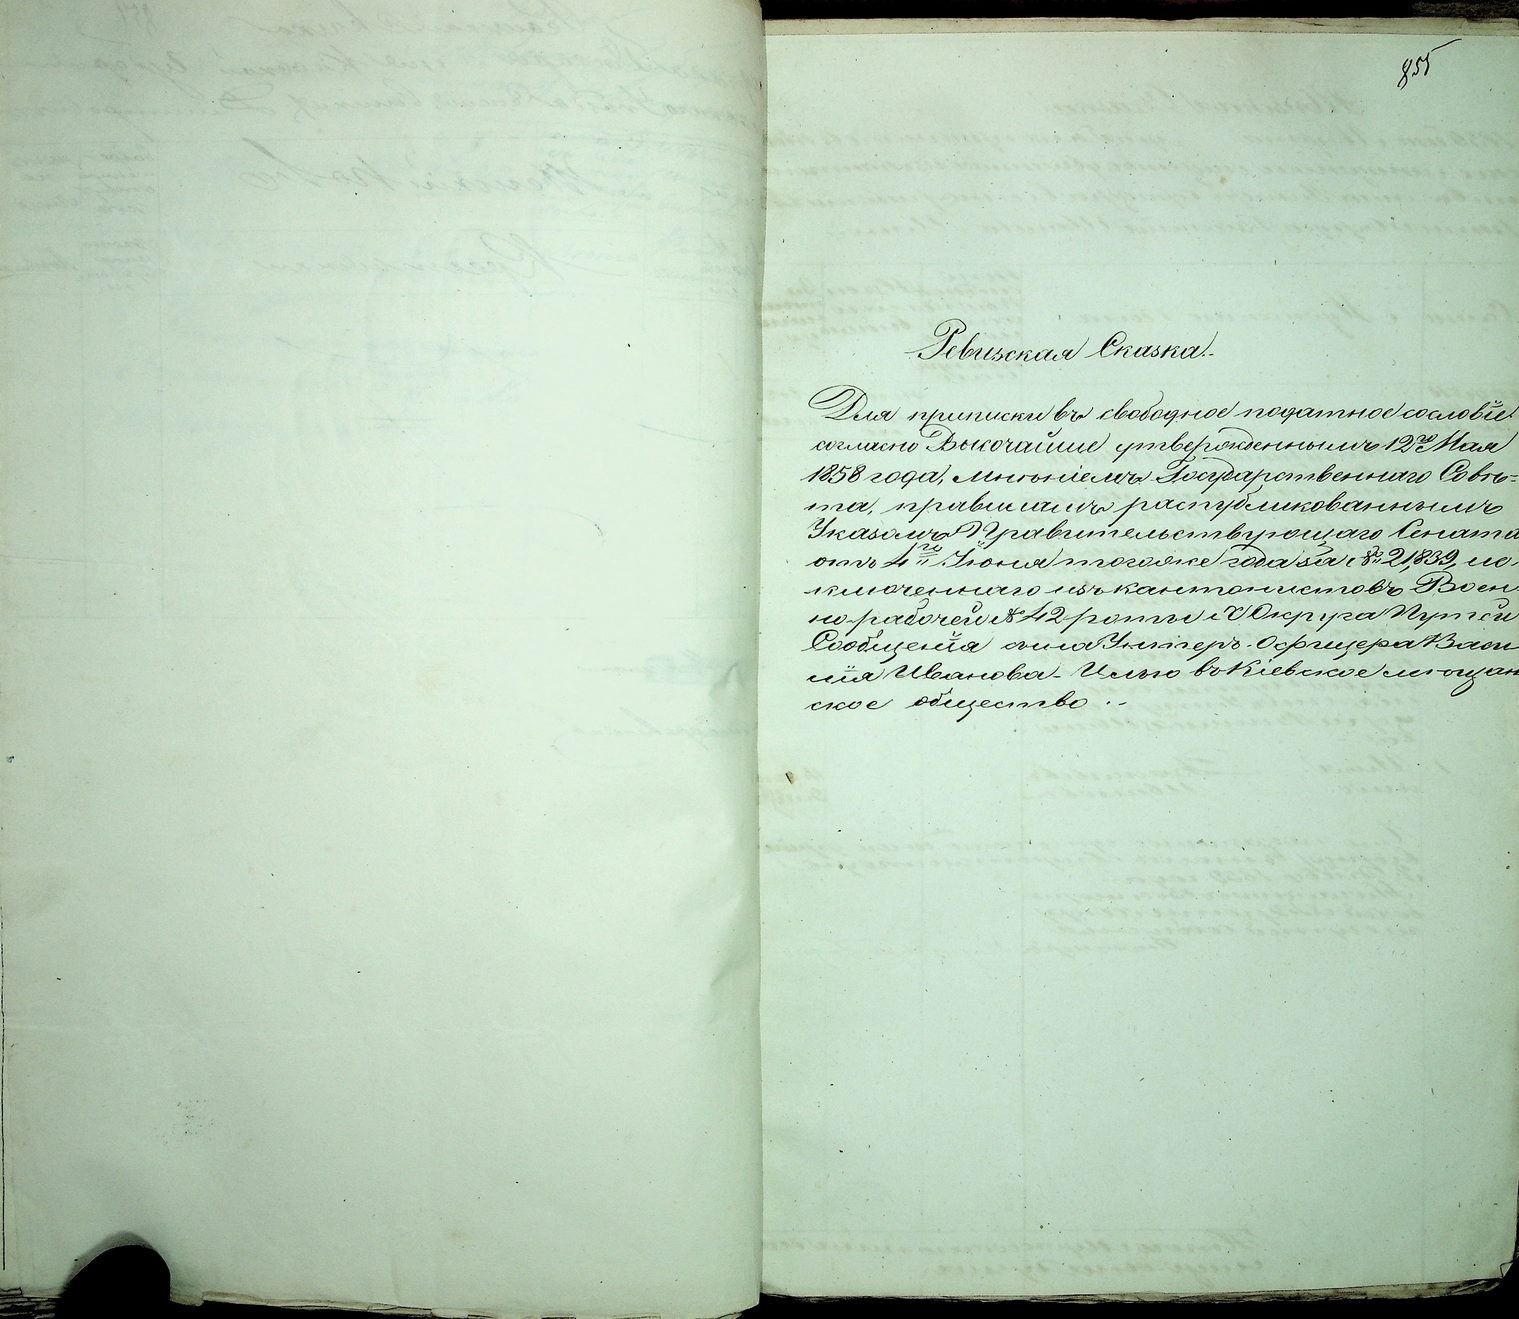 855
Ревизская Сказка.
Для приписки въ свободное податное сословіе
согласно Высочайше утвержденнымъ 12го Мая
1858 года, мнѣніемъ Государственнаго Совѣ=
та, правиламъ распубликованнымъ
Указомъ Правительствующаго Сената
отъ 4го Іюня тогоже года за № 21,839, ис-
ключеннаго изъ кантонистовъ Воен-
но рабочей № 42 роты X Округа Путей
Сообщенія сына Унтеръ-Офицера Васи
лія Иванова - Илью въ Кіевское мѣщан
ское общество.-